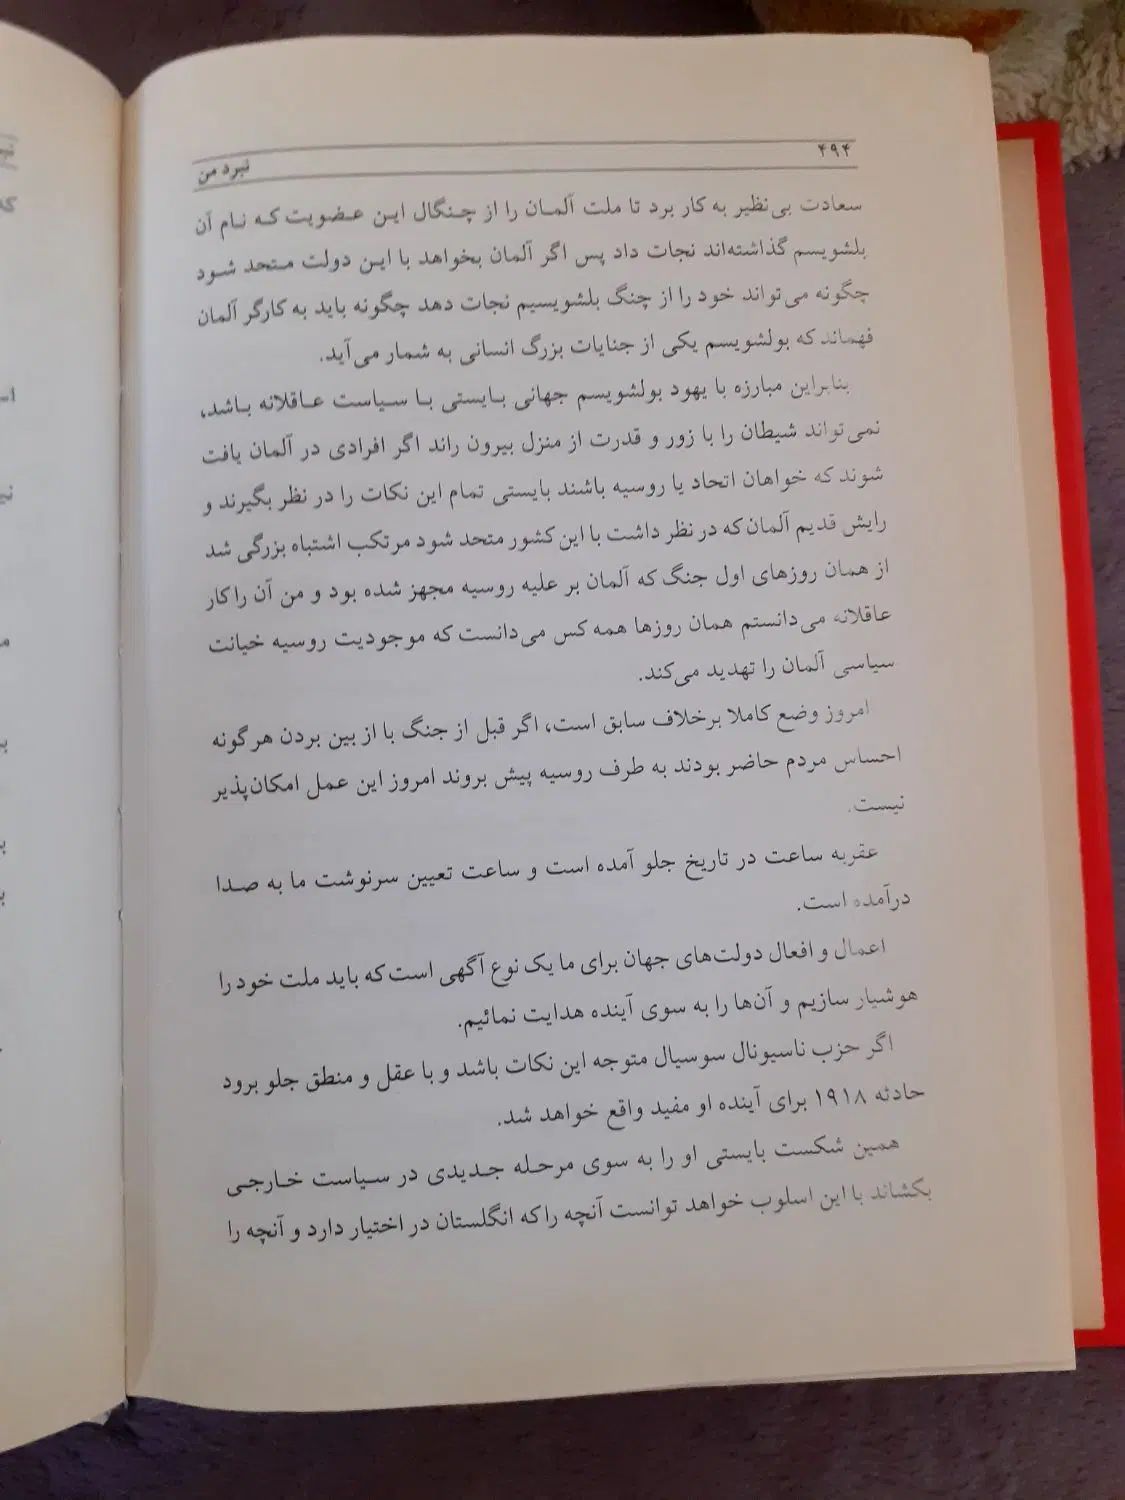 ۴۹۴
نبرد من
سعادت بی‌نظیر به کار برد تا ملت آلمـان را از چـنگال ایـن عـضویت کـه نـام آن
بلشویسم گذاشته‌اند نجات داد پس اگر آلمان بخواهد با ایـن دولت متحد شـود
چگونه می‌تواند خود را از چنگ بلشویسیم نجات دهد چگونه باید به کارگر آلمان
فهماند که بولشویسم یکی از جنایات بزرگ انسانی به شمار می‌آید.
بنابراین مبارزه با یهود بولشویسم جهانی بـایستی بـا سـیاست عـاقلانه بـاشد،
نمی‌تواند شیطان را با زور و قدرت از منزل بیرون راند اگر افرادی در آلمان یافت
شوند که خواهان اتحاد یا روسیه باشند بایستی تمام این نکات را در نظر بگیرند و
رایش قدیم آلمان که در نظر داشت با این کشور متحد شود مرتکب اشتباه بزرگی شد
از همان روزهای اول جنگ که آلمان بر علیه روسیه مجهز شده بود و من آن را کار
عاقلانه می‌دانستم همان روزها همه کس می‌دانست که موجودیت روسیه خیانت
سیاسی آلمان را تهدید می‌کند.
امروز وضع کاملا برخلاف سابق است، اگر قبل از جنگ با از بین بردن هرگونه
احساس مردم حاضر بودند به طرف روسیه پیش بروند امروز این عمل امکان‌پذیر
نیست.
عقربه ساعت در تاریخ جلو آمده است و ساعت تعیین سرنوشت ما به صـدا
درآمده است.
اعمال و افعال دولت‌های جهان برای ما یک نوع آگهی است که باید ملت خود را
هوشیار سازیم و آن‌ها را به سوی آینده هدایت نمائیم.
اگر حزب ناسیونال سوسیال متوجه این نکات باشد و با عقل و منطق جلو برود
حادثه ۱۹۱۸ برای آینده او مفید واقع خواهد شد.
همین شکست بایستی او را به سوی مرحـله جـدیدی در سـیاست خـارجـی
بکشاند با این اسلوب خواهد توانست آنچه را که انگلستان در اختیار دارد و آنچه را